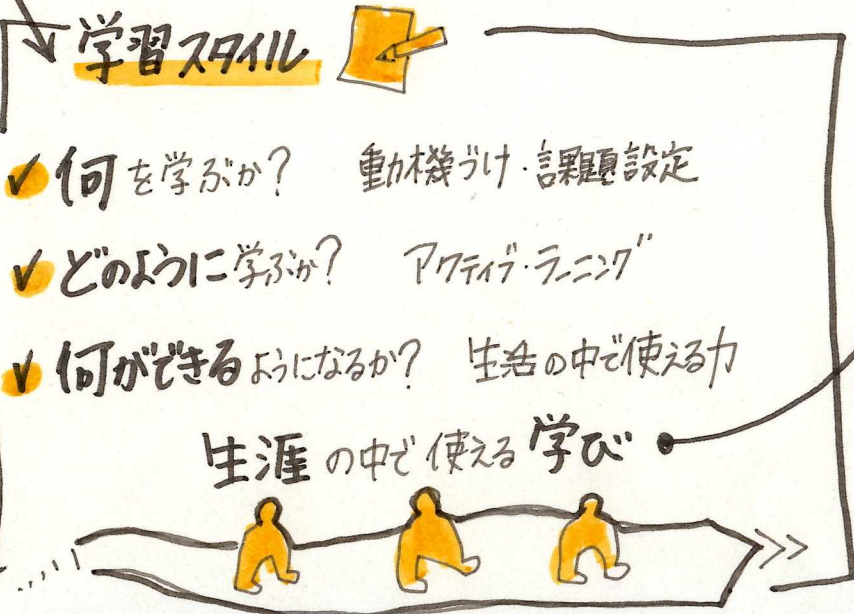 学習スタイル
何を学ぶか? 動機づけ・課題設定
どのように学ぶか? アクティブ・ラーニング
何ができるようになるか? 生活の中で使える力
生涯の中で使える学び